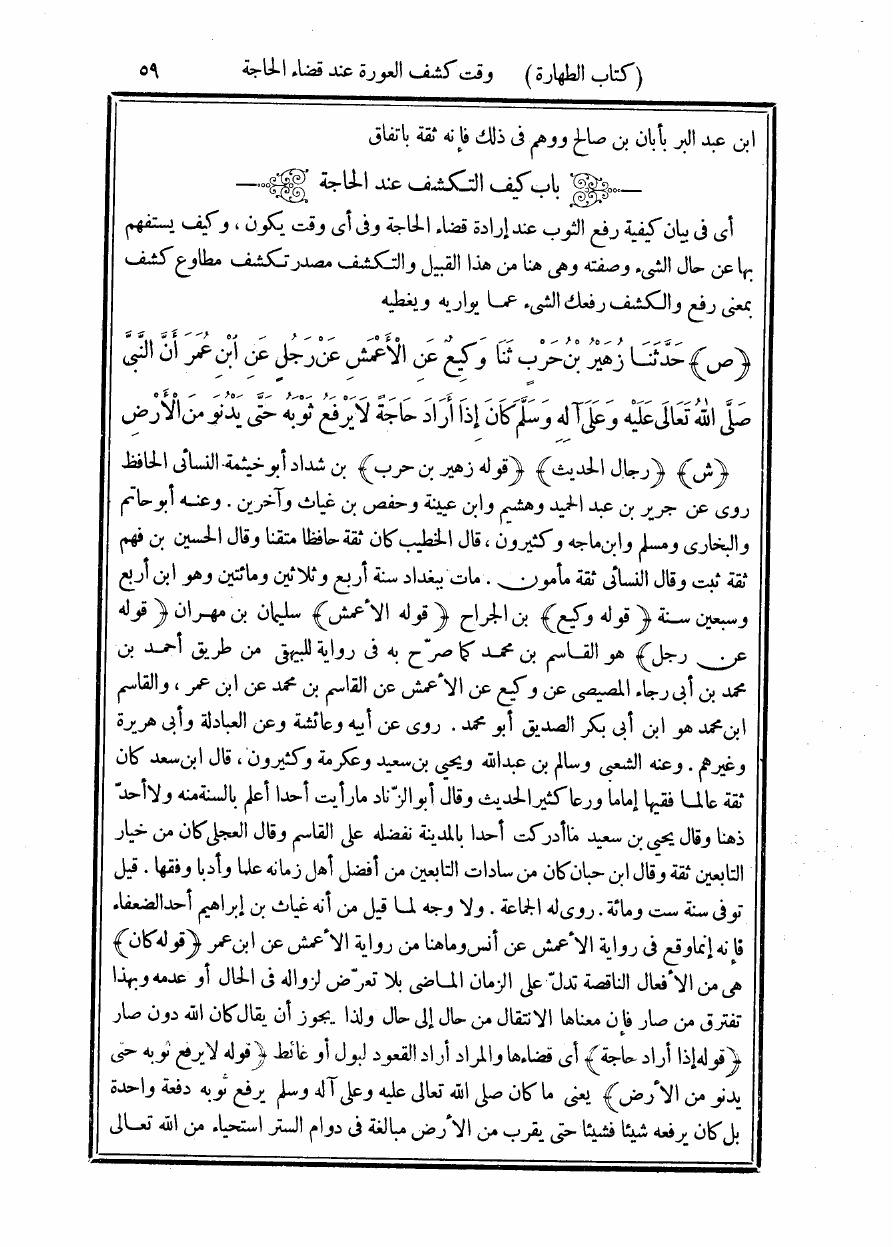 (كتاب الطهارة) وقت كشف العورة عند قضاء الحاجة ٥٩
ابن عبد البر بأبان بن صالح ووهم فى ذلك فإنه ثقة باتفاق
باب كيف التكشف عند الحاجة
أى فى بيان كيفية رفع الثوب عند إرادة قضاء الحاجة وفى أى وقت يكون ، وكيف يستفهم
بها عن حال الشىء وصفته وهى هنا من هذا القبيل والتكشف مصدر تكشف مطاوع كشف
بمعنى رفع والكشف رفعك الشىء عما يواريه ويغطيه
﴿ص﴾ حَدَّثَنَا زُهَيْرُ بْنُ حَرْبٍ ثَنَا وَكِيعٌ عَنِ الْأَعْمَشِ عَنْ رَجُلٍ عَنِ ابْنِ عُمَرَ أَنَّ النَّبِىَّ
صَلَّى اللهُ تَعَالَى عَلَيْهِ وَعَلَى آلِهِ وَسَلَّمَ كَانَ إِذَا أَرَادَ حَاجَةً لَا يَرْفَعُ ثَوْبَهُ حَتَّى يَدْنُوَ مِنَ الْأَرْضِ
﴿ش﴾ ﴿رجال الحديث﴾ ﴿قوله زهير بن حرب﴾ بن شداد أبو خيثمة النسائى الحافظ
روى عن جرير بن عبد الحميد وهشيم وابن عيينة وحفص بن غياث وآخرين . وعنه أبو حاتم
والبخارى ومسلم وابن ماجه وكثيرون ، قال الخطيب كان ثقة حافظا متقنا وقال الحسين بن فهم
ثقة ثبت وقال النسائى ثقة مأمون . مات ببغداد سنة أربع وثلاثين ومائتين وهو ابن أربع
وسبعين سنة ﴿قوله وكيع﴾ بن الجراح ﴿قوله الأعمش﴾ سليمان بن مهران ﴿قوله
عن رجل﴾ هو القاسم بن محمد كما صرّح به فى رواية للبيهقى من طريق أحمد بن
محمد بن أبى رجاء المصيصى عن وكيع عن الأعمش عن القاسم بن محمد عن ابن عمر ، والقاسم
ابن محمد هو ابن أبى بكر الصديق أبو محمد . روى عن أبيه وعائشة وعن العبادلة وأبى هريرة
وغيرهم . وعنه الشعبى وسالم بن عبد الله ويحيى بن سعيد وعكرمة وكثيرون ، قال ابن سعد كان
ثقة عالما فقيها إماما ورعا كثير الحديث وقال أبو الزّناد ما رأيت أحدا أعلم بالسنة منه ولا أحدّ
ذهنا وقال يحيى بن سعيد ما أدركت أحدا بالمدينة نفضله على القاسم وقال العجلى كان من خيار
التابعين ثقة وقال ابن حبان كان من سادات التابعين من أفضل أهل زمانه علما وأدبا وفقها . قيل
توفى سنة ست ومائة . روى له الجماعة . ولا وجه لما قيل من أنه غياث بن إبراهيم أحد الضعفاء
فإنه إنما وقع فى رواية الأعمش عن أنس وما هنا من رواية الأعمش عن ابن عمر ﴿قوله كان﴾
هى من الأفعال الناقصة تدلّ على الزمان الماضى بلا تعرّض لزواله فى الحال أو عدمه وبهذا
تفترق من صار فإن معناها الانتقال من حال إلى حال ولذا يجوز أن يقال كان الله دون صار
﴿قوله إذا أراد حاجة﴾ أى قضاءها والمراد أراد القعود لبول أو غائط ﴿قوله لا يرفع ثوبه حتى
يدنو من الأرض﴾ يعنى ما كان صلى الله تعالى عليه وعلى آله وسلم يرفع ثوبه دفعة واحدة
بل كان يرفعه شيئا فشيئا حتى يقرب من الأرض مبالغة فى دوام الستر استحياء من الله تعالى